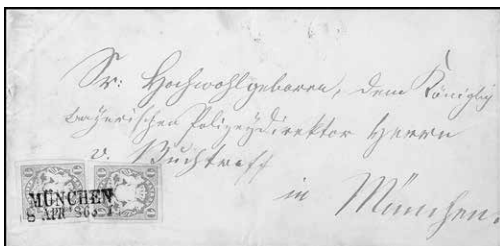 Sr: Hochwohlgeboren, dem Königlich
bayerischen Polizeydirektor Herrn
v.
in München.
MÜNCHEN
8 APR